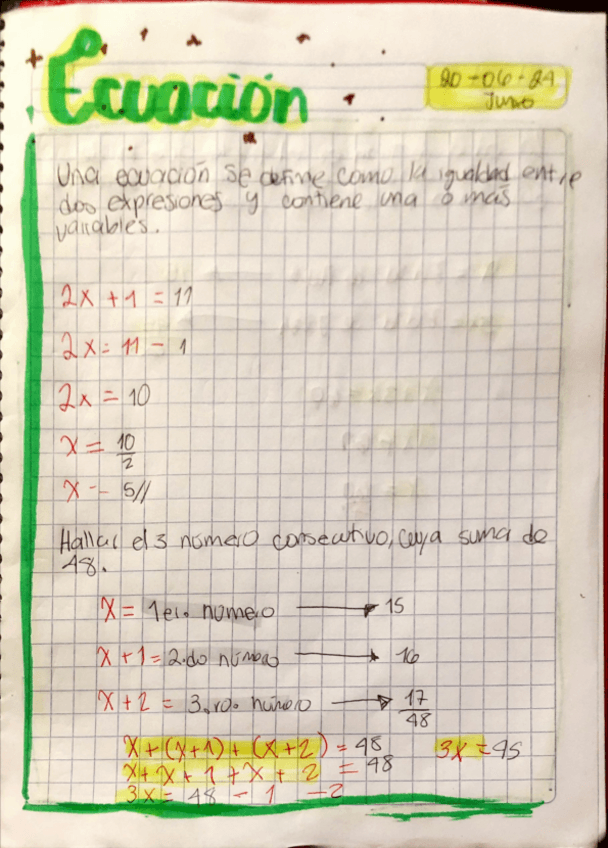 Ecuación
20-06-24
Junio
Una ecuación se define como la igualdad entre
dos expresiones y contiene una o más
variables.
2x + 1 = 11
2x = 11 - 1
2x = 10
x = 10/2
x = 5//
Hallar el 3 número consecutivo, cuya suma de
48.
x = 1er. número → 15
x + 1 = 2.do número → 16
x + 2 = 3.ro. número → 17
48
x + (x+1) + (x+2) = 48 3x = 45
x + x + 1 + x + 2 = 48
3x = 48 - 1 - 2